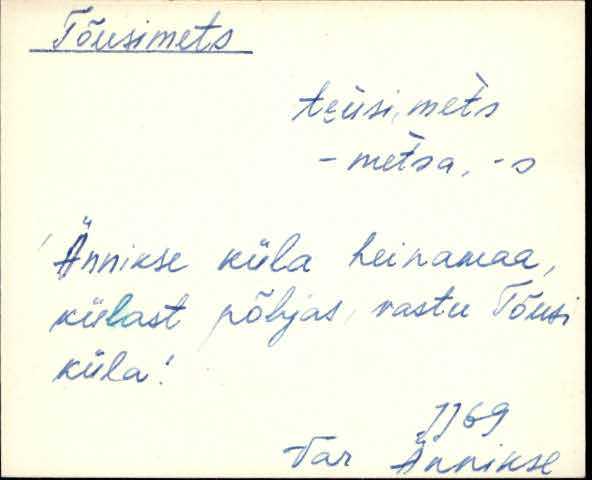 Tõusimets
te̮usi, mèts
- mètsa, -s
Ännikse küla heinamaa,
külast põhjas, vastu Tõusi
küla!
JJ69
Var Ännikse